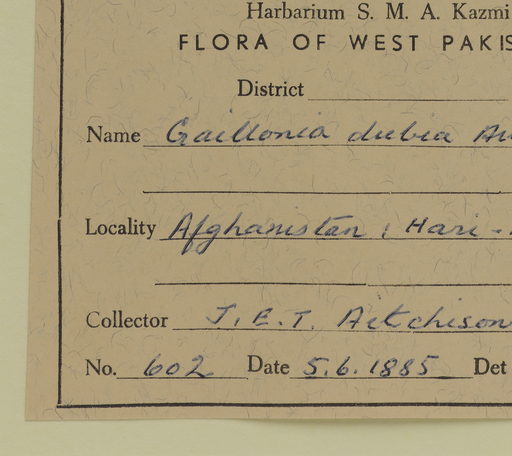 Harbarium S. M. A. Kazmi
FLORA OF WEST PAKIS
District
Name Gaillonia dubia Au
Locality Afghanistan ; Hari -
Collector J. E. T. Aitchison
No. 602 Date 5.6.1885 Det